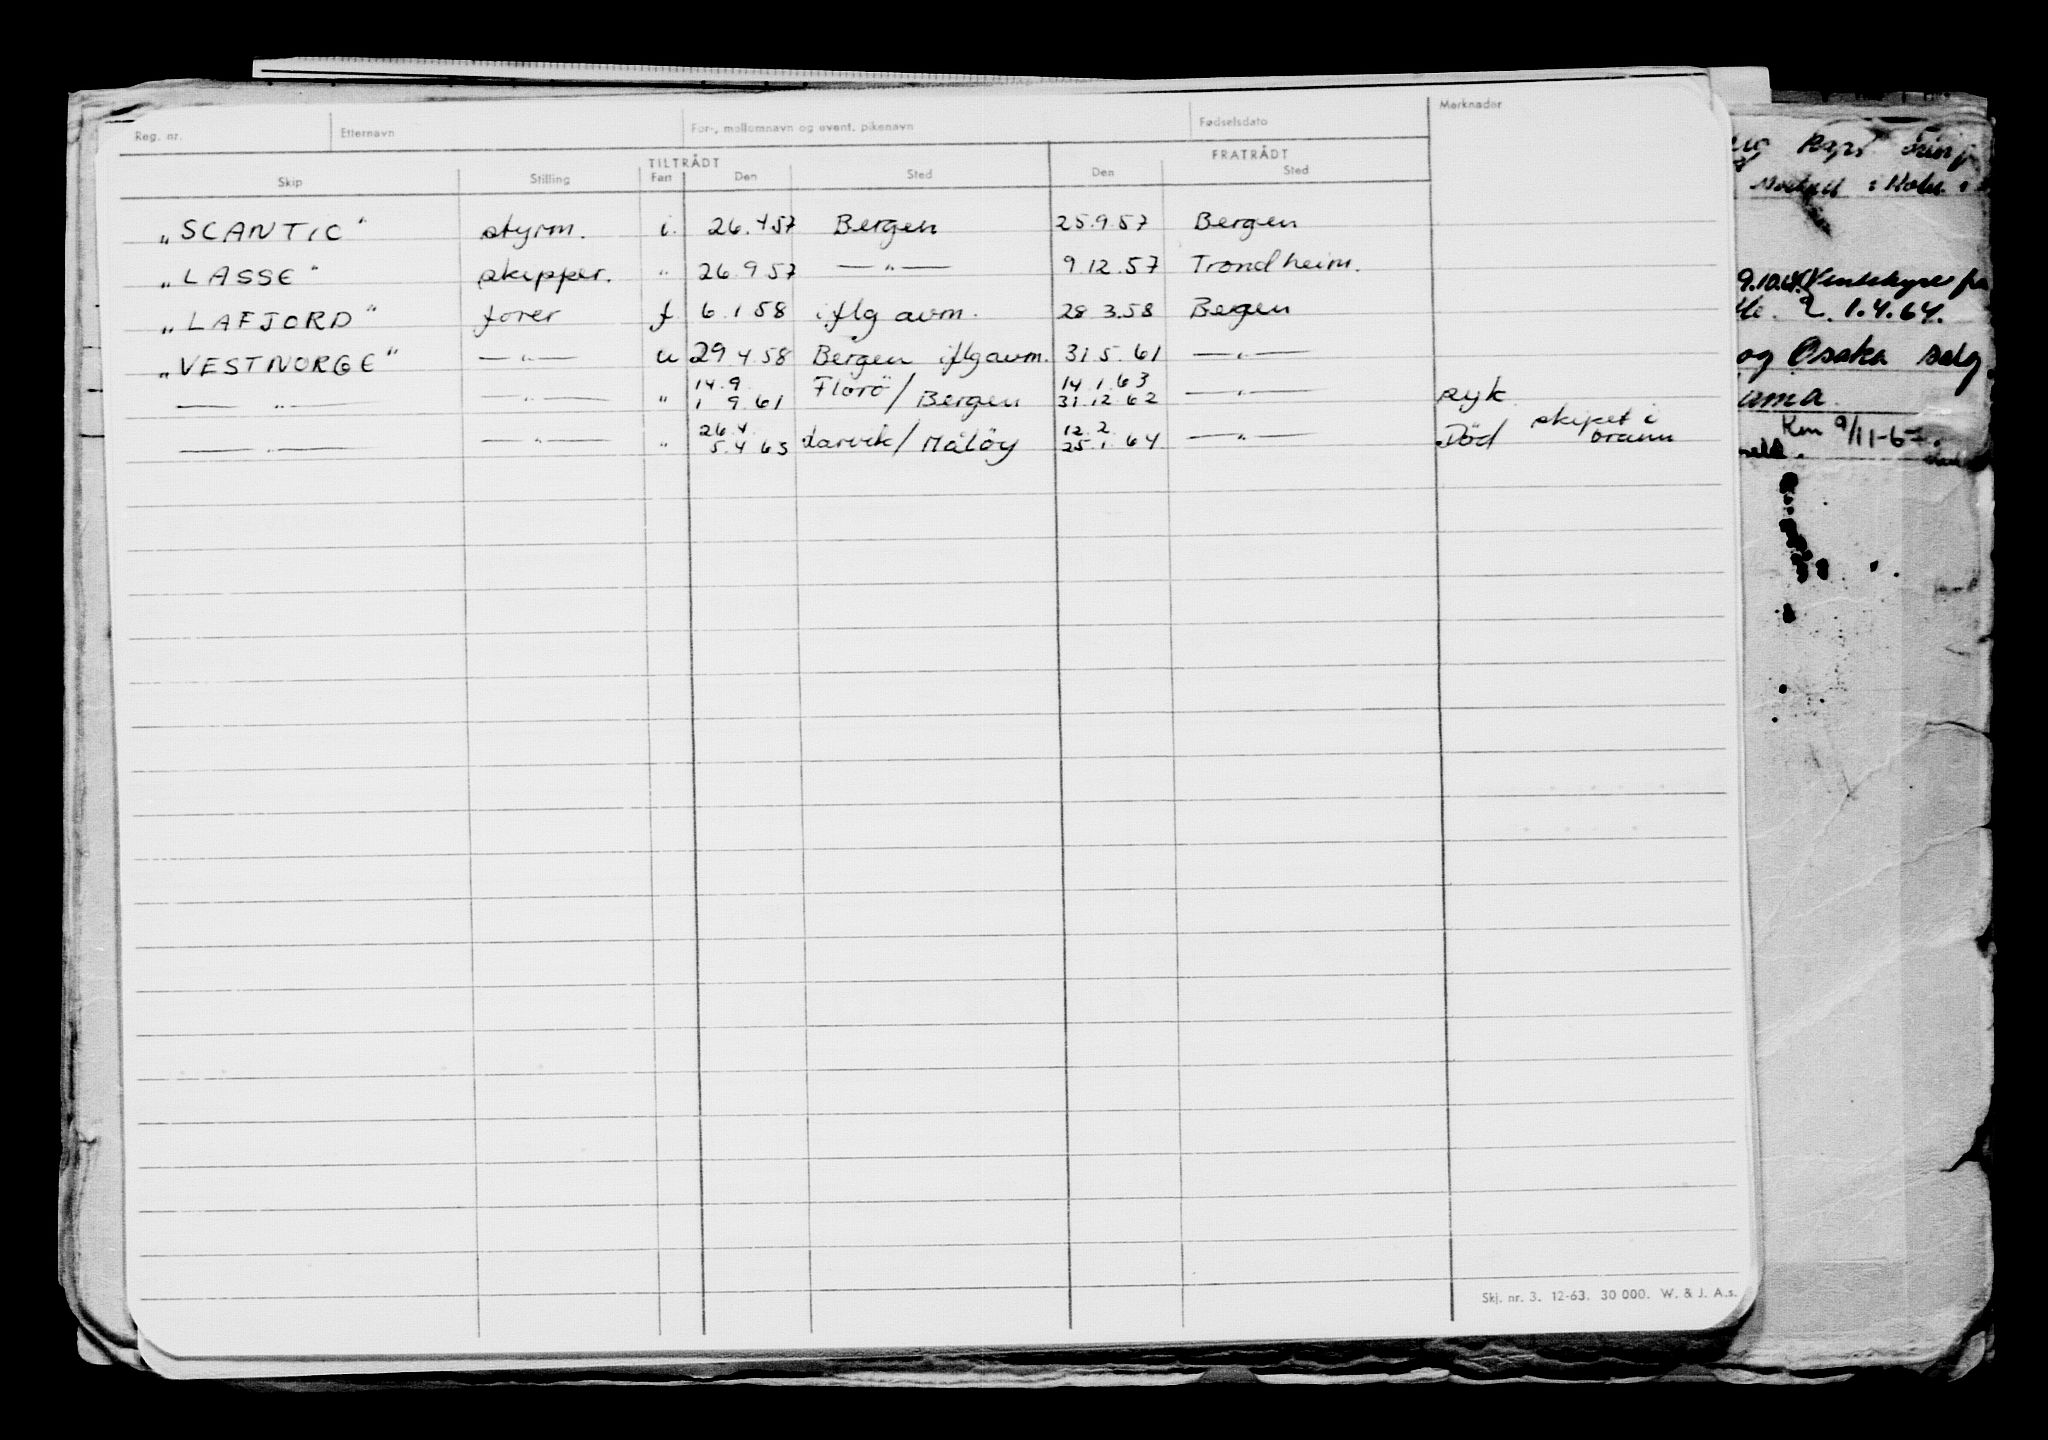 Reg. nr. Etternavn For-, mellomnavn og event. pikenavn Fødselsdato Merknader
TILTRÅDT FRATRÅDT
Skip Stilling Fart Den Sted Den Sted
„SCANTIC" styrm. i. 26.4.57 Bergen 25.9.57 Bergen
„LASSE" skipper. " 26.9.57 — " — 9.12.57 Trondheim.
„LAFJORD" fører f 6.1.58 iflg avm. 28.3.58 Bergen
„VESTNORGE" — " — u 29.4.58 Bergen iflg avm. 31.5.61 — " —
14.9. Florö/ 14.1.63
— " — — " — " 1 9.61 Bergen 31.12.62 — " — syk
26.4. 12.2. skipet i
— " — — " — " 5.4.63 Larvik/Målöy 25.1.64 — " — Död brann
Skj. nr. 3. 12-63. 30 000. W. & J. A.s.
i Kobe
9.10.
1.4.64.
og Osaka
9/11-67.